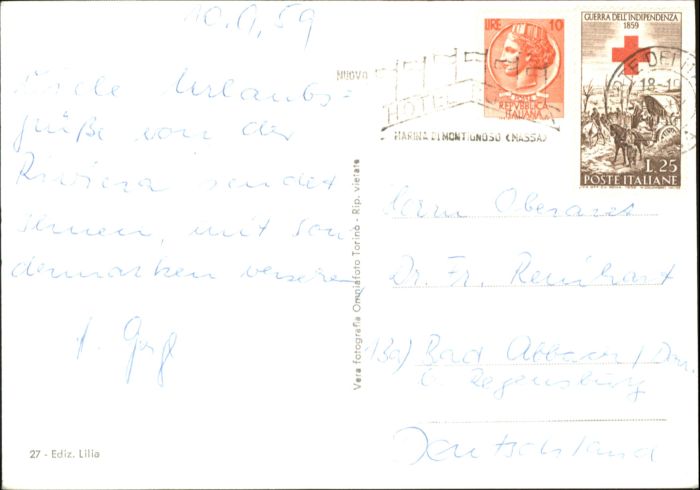 10.9.59
Viele Urlaubs=
grüße von der
Riviera sendet
Ihnen, mit Son
dermarken versehen,
Vera fotografia Omniafoto Torino - Rip. vietata
27 - Ediz. Lilia
NUOVA
HOTEL
MARINA DI MONTIGNOSO (MASSA)
LIRE 10
REPVBBLICA
ITALIANA
GUERRA DELL'INDIPENDENZA
1859
L.25
POSTE ITALIANE
18-19
Herrn Oberarzt
Dr. Fr. Reinhart
13a) Bad Abbach / Don.
b. Regensburg
Deutschland